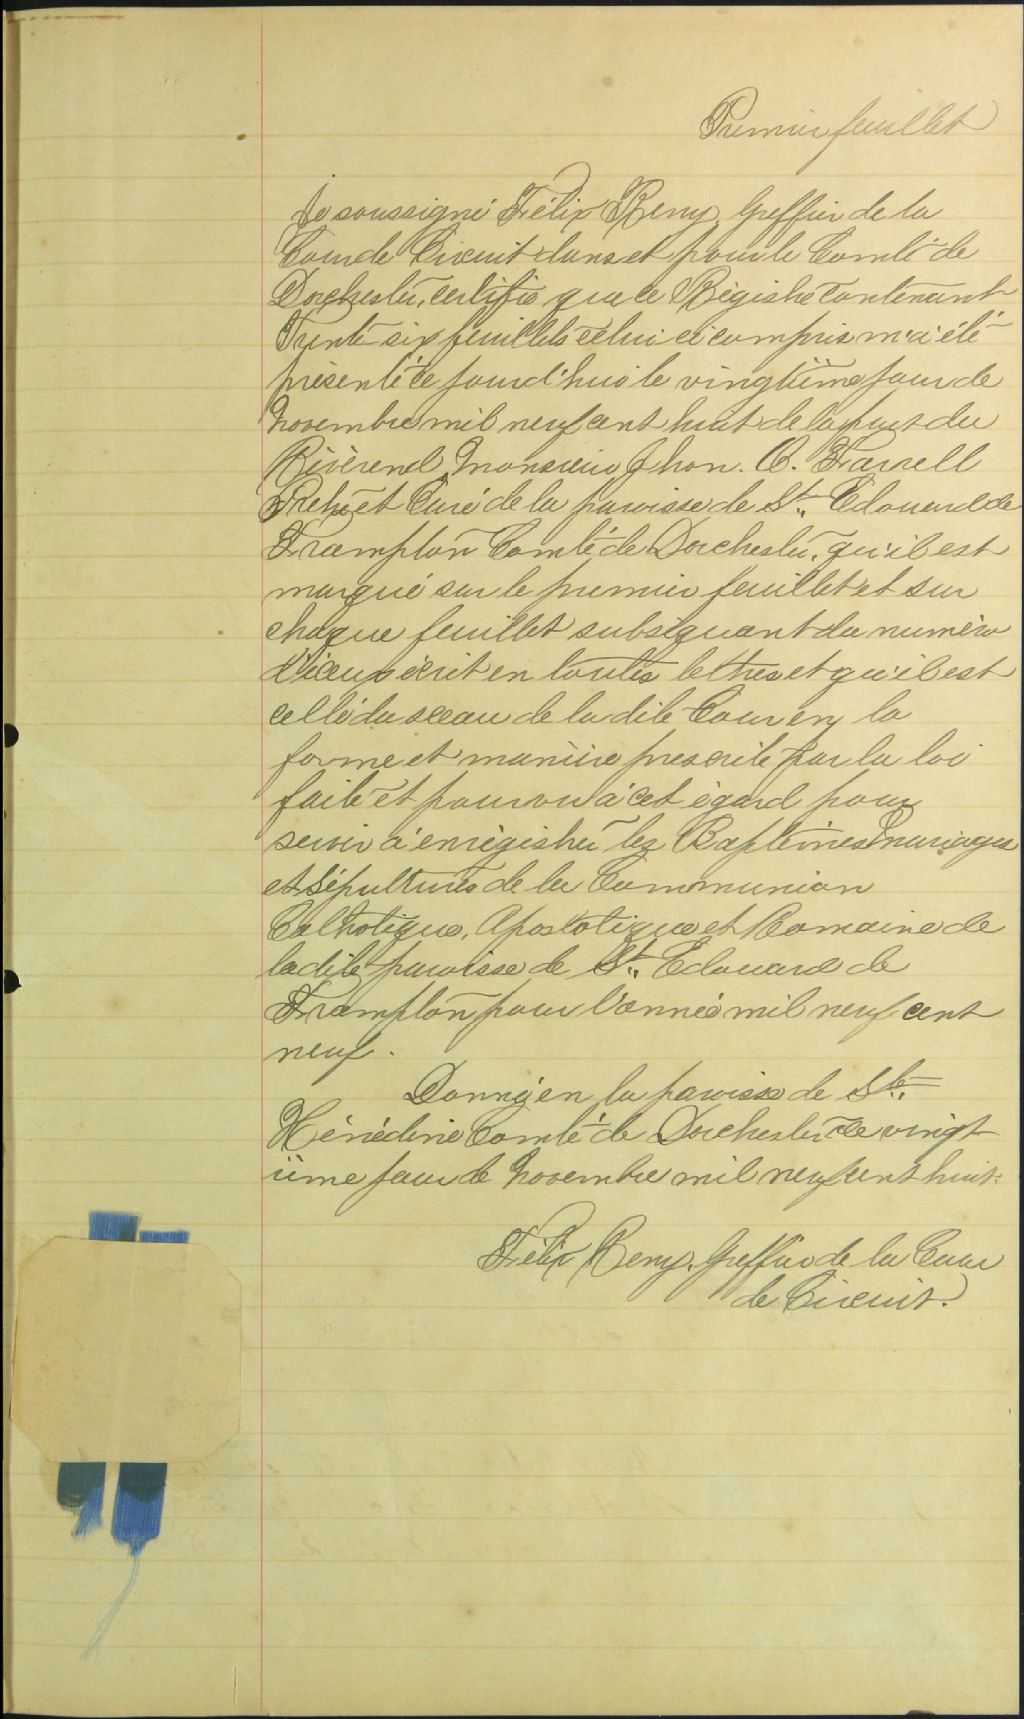 Premier feuillet
Je soussigné Félix Remy, Greffier de la
Cour de Circuit dans et pour le Comté de
Dorchester, certifie que ce Régistre contenant
Trente-six feuillets celui ci compris m'a été
présenté ce jourd'hui le vingtième jour de
Novembre mil neuf cent huit de la part du
Révérend Monsieur Jhon. O. Farrell
Prêtre et Curé de la paroisse de St. Edouard de
Frampton Comté de Dorchester, qu'il est
marqué sur le premier feuillet et sur
chaque feuillet subséquant du numéro
d'iceux écrit en toutes lettres et qu'il est
cellé du sceau de la dite Cour en la
forme et manière prescrite par la loi
faite et pourvu à cet égard pour
servir à enrégistrer les Baptêmes Mariages
et Sépultures de la Communion
Catholique, Apostolique et Romaine de
la dite paroisse de St. Edouard de
Frampton pour l'année mil neuf cent
neuf.
Donné en la paroisse de Ste.
Hénédine Comté de Dorchester ce vingt
ième jour de Novembre mil neuf cent huit.
Félix Remy, Greffier de la Cour
de Circuit.